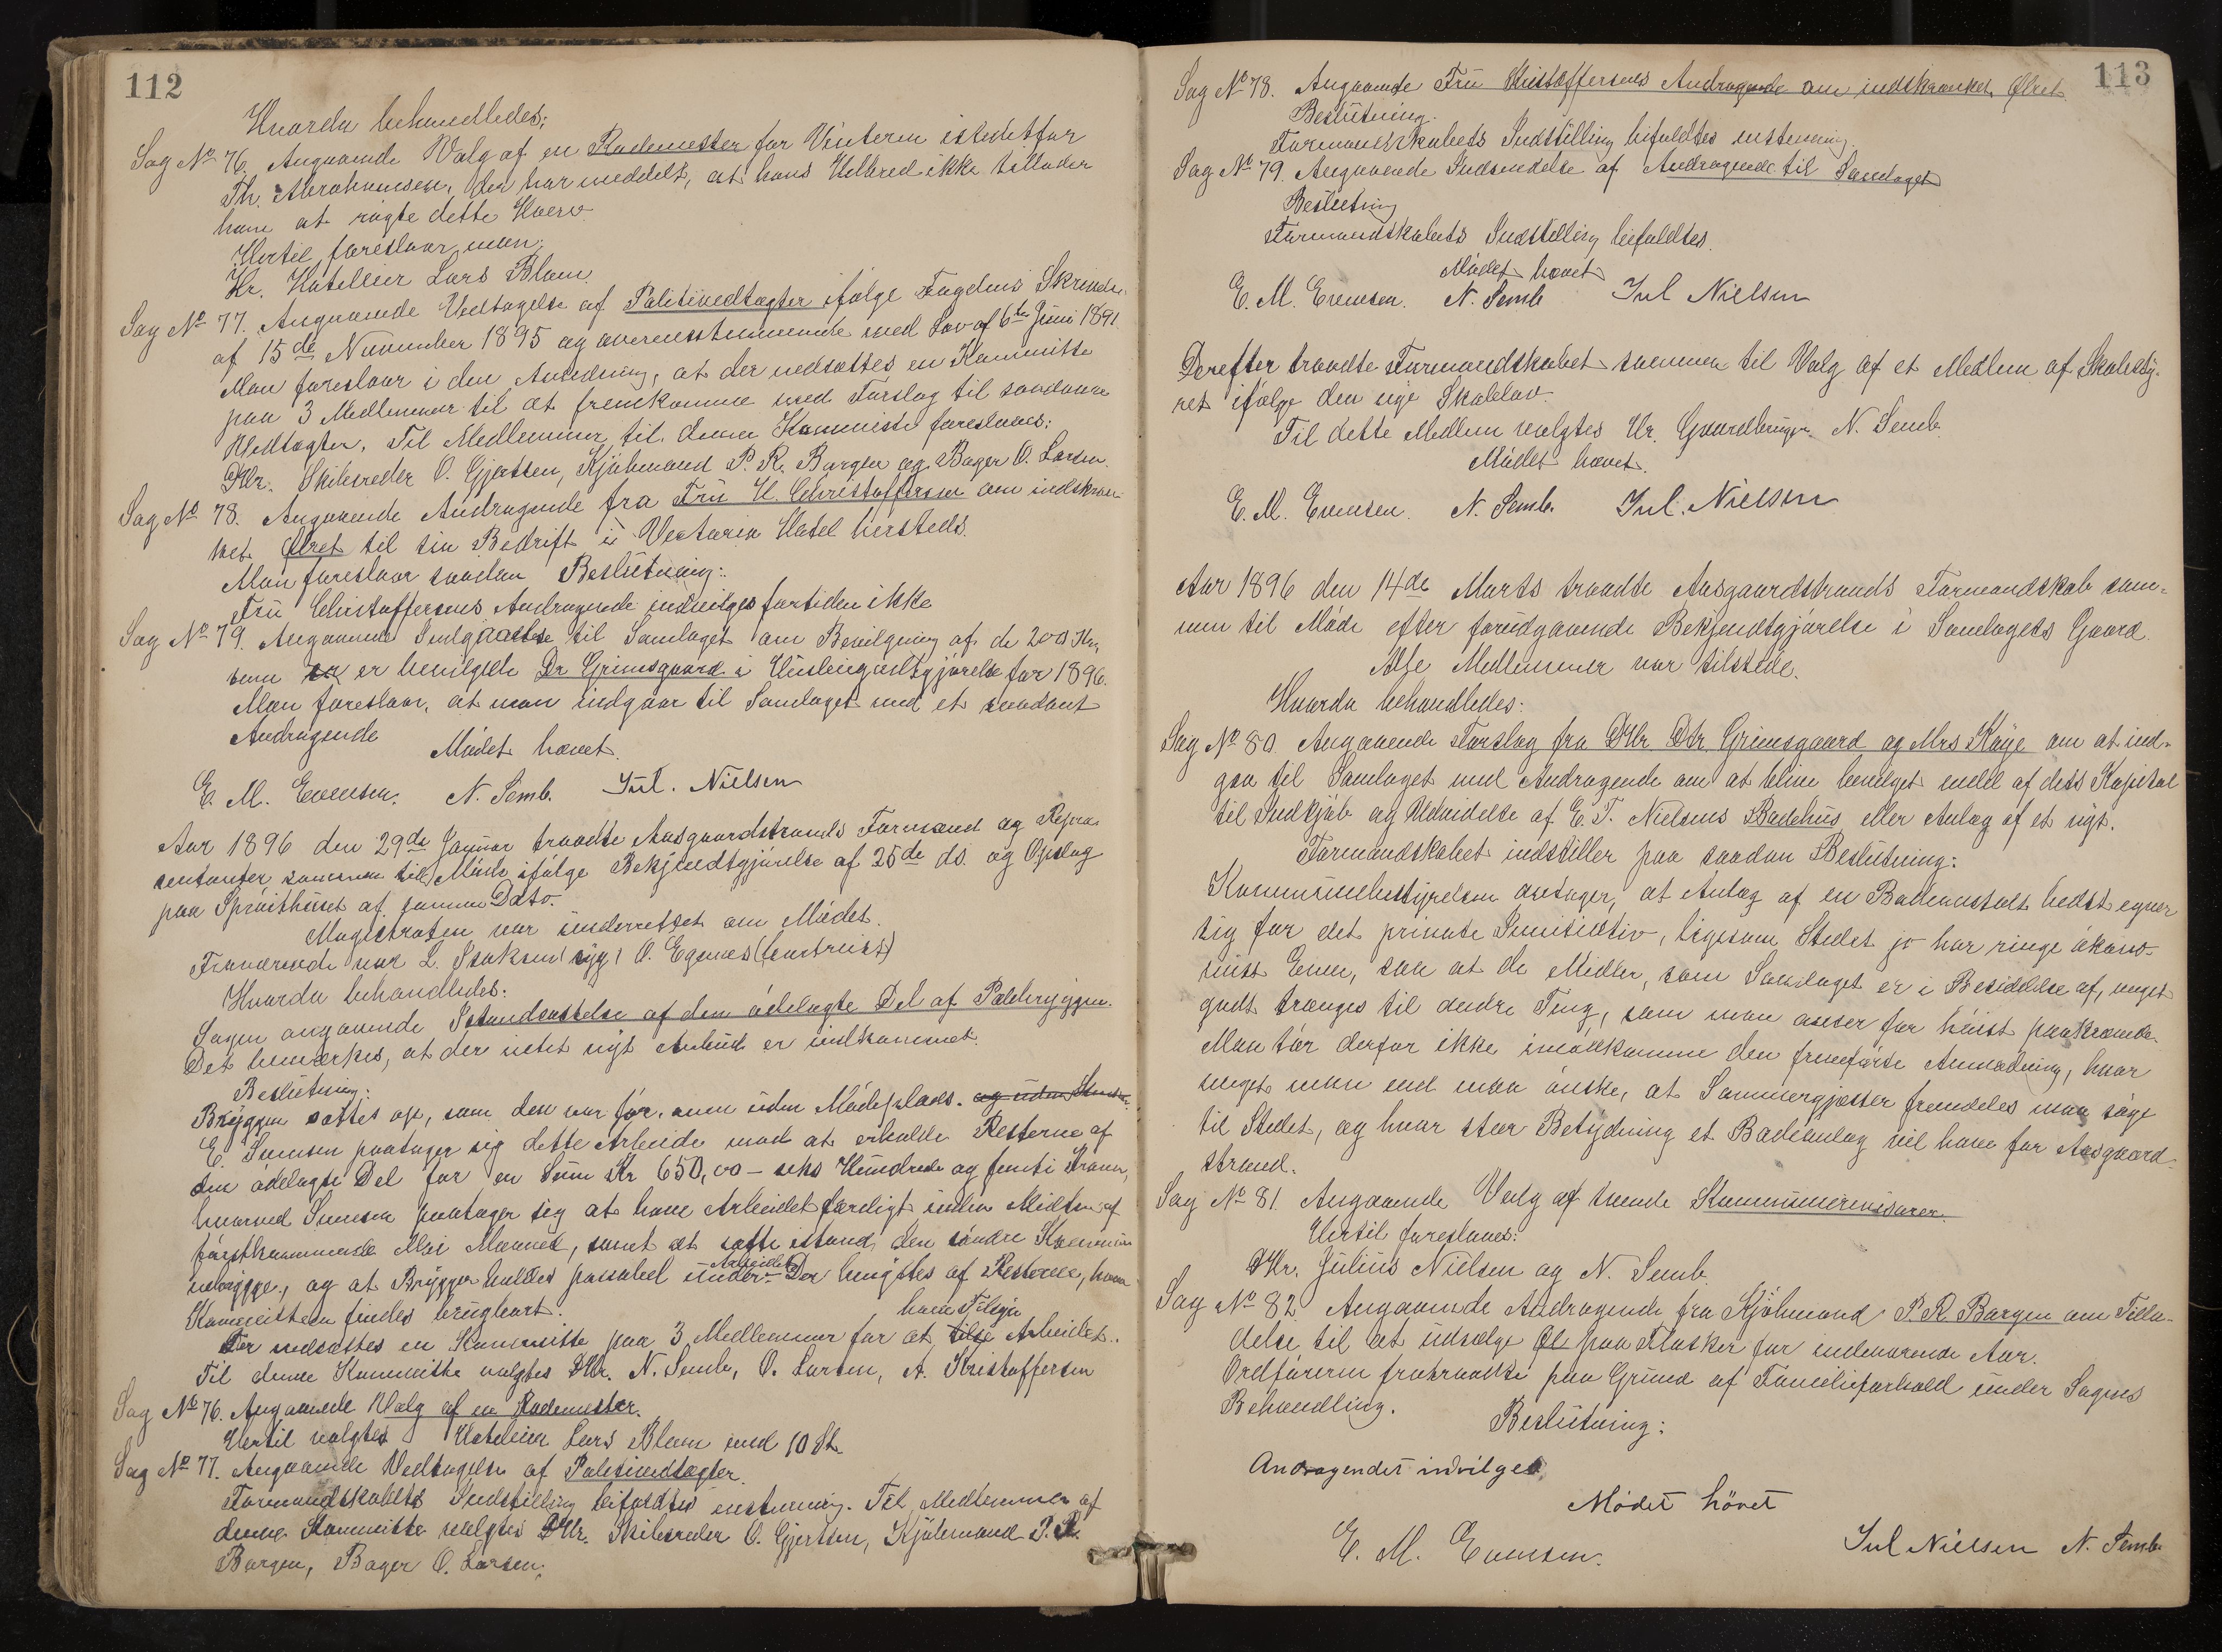 112
Hvorda behandledes:
Sag No 76. Angaaende Valg af en Rodemester for Vinteren istedetfor
Th. Abrahamsen, der har meddelt, at hans Helbred ikke tillader
ham at røgte dette Hverv.
Hertil foreslaar man:
Hr. Hotelleier Lars Blom.
Sag No 77. Angaaende Vedtagelse af Politivedtægter ifølge Fogdens Skrivelse
af 15de November 1895 og overensstemmende med Lov af 6te Juni 1891.
Man foreslaar i den Anledning, at der nedsættes en Kommitte
paa 3 Medlemmer til at fremkomme med Forslag til saadanne
Vedtægter. Til Medlemmer til denne Kommitte foreslaaes:
DHr. Skibsreder O. Gjertsen, Kjøbmand P. R. Bargen og Bager O. Larsen.
Sag No 78. Angaaende Andragende fra Fru H. Christoffersen om indskræn-
ket Ølret til sin Bedrift i Victoria Hotel hersteds.
Man foreslaar saadan Beslutning:
Fru Christoffersens Andragende indvilges fortiden ikke
Sag No 79. Angaaende Indgaaelse til Samlaget om Bevilgning af de 200 Kr,
som er bevilgede Dr Grimsgaard i Husleiegodtgjørelse for 1896.
Man foreslaar, at man indgaar til Samlaget med et saadant
Andragende
Mødet hævet.
E. M. Evensen. N. Semb. Jul. Nielsen
Aar 1896 den 29de Januar traadte Aasgaardstrands Formænd og Repræ-
sentanter sammen til Møde ifølge Bekjendtgjørelse af 25de ds. og Opslag
paa Sprøithuset af samme Dato.
Magistraten var underrettet om Mødet.
Fraværende var L. Isaksen (syg) O. Egenes (bortreist)
Hvorda behandledes:
Sagen angaaende Istandsættelse af den ødelagte Del af Pælebryggen.
Det bemærkes, at der intet nyt Anbud er indkommet.
Beslutning:
Bryggen sættes op, som den var før, men uden Mødeplads. og uden
E. Svensen paatager sig dette Arbeide mod at erholde Resterne af
den ødelagte Del for en Sum Kr 650,00 – seks Hundrede og femti Kroner,
hvorved Svensen paatager sig at have Arbeidet færdigt inden Midten af
førstkommende Mai Maaned, samt at sætte istand den søndre Kommu-
nebrygge, og at Bryggen holdes passabel under Arbeidet. Der benyttes af Resterne, hvad
Kommitteen findes brugbart.
Der nedsættes en Kommitte paa 3 Medlemmer for at have Tilsyn Arbeidet.
Til denne Kommitte valgtes DHr. N. Semb, O. Larsen, A. Kristoffersen
Sag No 76. Angaaende Valg af en Rodemester.
Hertil valgtes Hotelleier Lars Blom med 10 St.
Sag No 77. Angaaende Vedtagelse af Politivedtægter.
Formandskabets Indstilling bifaldtes enstemmig. Til Medlemmer af
denne Kommitte valgtes DHr. Skibsreder O. Gjertsen, Kjøbmand P. R.
Bargen, Bager O. Larsen.
113
Sag No 78. Angaaende Fru Kristoffersens Andragende om indskrænket Ølret.
Beslutning:
Formandskabets Indstilling bifaldtes enstemmig
Sag No 79. Angaaende Indsendelse af Andragende til Samlaget
Beslutning
Formandskabets Indstilling bifaldtes.
Mødet hævet
E. M. Evensen. N. Semb Jul Nielsen
Derefter traadte Formandskabet sammen til Valg af et Medlem af Skolesty-
ret ifølge den nye Skolelov.
Til dette Medlem valgtes Hr. Gaardbruger N. Semb.
Mødet hævet.
E. M. Evensen. N. Semb. Jul. Nielsen
Aar 1896 den 14de Marts traadte Aasgaardstrands Formandskab sam-
men til Møde efter forudgaaende Bekjendtgjørelse i Samlagets Gaard.
Alle Medlemmer var tilstede.
Hvorda behandledes:
Sag No 80. Angaaende Forslag fra DHr Dr. Grimsgaard og Mrs Kaye om at ind-
gaa til Samlaget med Andragende om at blive bevilget endel af dets Kapital
til Indkjøb og Udvidelse af E. T. Nielsens Badehus eller Anlæg af et nyt.
Formandskabet indstiller paa saadan Beslutning:
Kommunebestyrelsen antager, at Anlæg af en Badeanstalt bedst egner
sig for det private Initiativ, ligesom Stedet jo har ringe økono-
misk Evne, saa at de Midler, som Samlaget er i Besiddelse af, meget
godt trænges til andre Ting, som man anser for høist paakrævede.
Man tør derfor ikke imøtekomme den fremførte Anmodning, hvor
meget man end maa ønske, at Sommergjæster fremdeles maa søge
til Stedet, og hvor stor Betydning et Badeanlæg vil have for Aasgaard-
strand.
Sag No 81. Angaaende Valg af tvende Kommunerevisorer.
Hertil foreslaaes:
DHr. Julius Nielsen og N. Semb.
Sag No 82. Angaaende Andragende fra Kjøbmand P. R. Bargen om Tilla-
delse til at udsælge Øl paa Flasker for indeværende Aar.
Ordføreren fratraadte paa Grund af Familieforhold under Sagens
Behandling.
Beslutning:
Andragendet indvilges
Mødet hævet
E. M. Evensen. Jul Nielsen N. Semb.